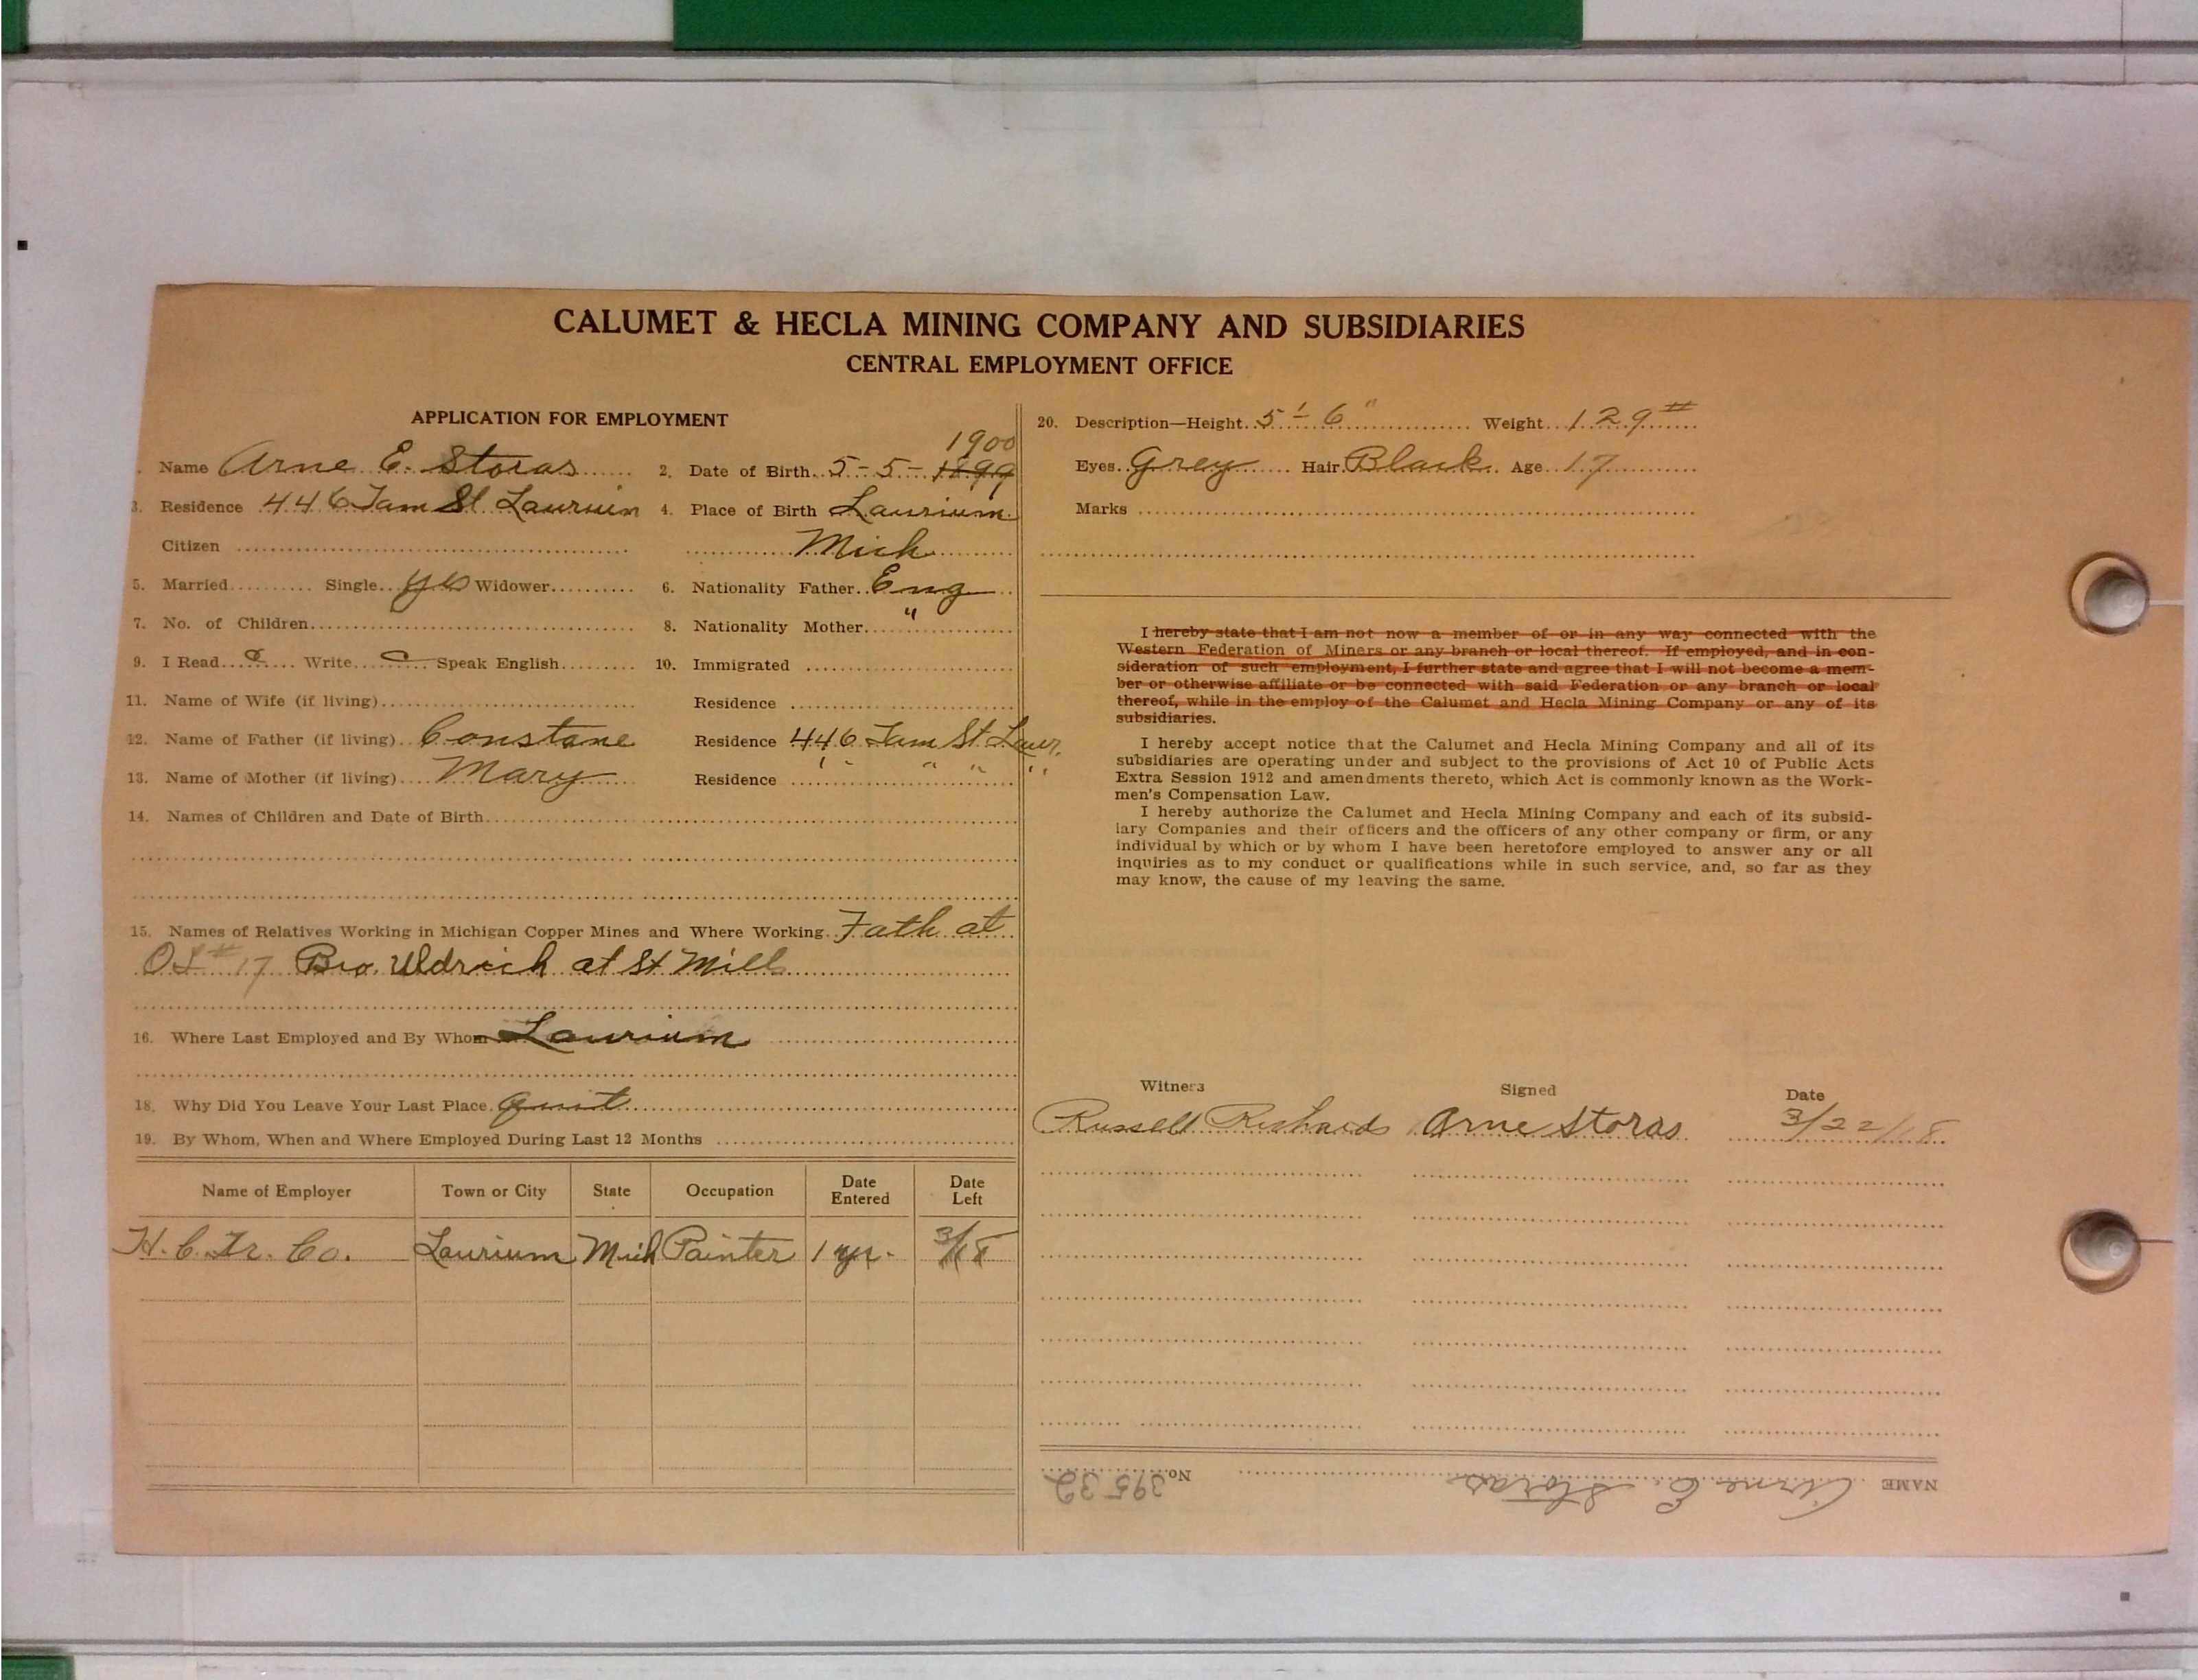 CALUMET & HECLA MINING COMPANY AND SUBSIDIARIES
CENTRAL EMPLOYMENT OFFICE
APPLICATION FOR EMPLOYMENT
1900
. Name Arne E. Storas 2. Date of Birth 5-5-1899
3. Residence 446 Tam St Laurium 4. Place of Birth Laurium
Citizen Mich
5. Married Single yes Widower 6. Nationality Father Eng
7. No. of Children 8. Nationality Mother "
9. I Read Write Speak English 10. Immigrated
11. Name of Wife (if living) Residence
12. Name of Father (if living) Constane Residence 446 Tam St Laur.
13. Name of Mother (if living) Mary Residence " " " "
14. Names of Children and Date of Birth
15. Names of Relatives Working in Michigan Copper Mines and Where Working Fath at
# 17 Bro. Uldrich at St Mills
16. Where Last Employed and By Whom Laurium
18. Why Did You Leave Your Last Place quit
19. By Whom, When and Where Employed During Last 12 Months
Name of Employer Town or City State Occupation Date Entered Date Left
H. C. Tr. Co. Laurium Mich Painter 1 yr. 3/18
20. Description—Height 5'-6" Weight 129#
Eyes Grey Hair Black Age 17
Marks
I hereby state that I am not now a member of or in any way connected with the
Western Federation of Miners or any branch or local thereof. If employed, and in con-
sideration of such employment, I further state and agree that I will not become a mem-
ber or otherwise affiliate or be connected with said Federation or any branch or local
thereof, while in the employ of the Calumet and Hecla Mining Company or any of its
subsidiaries.
I hereby accept notice that the Calumet and Hecla Mining Company and all of its
subsidiaries are operating under and subject to the provisions of Act 10 of Public Acts
Extra Session 1912 and amendments thereto, which Act is commonly known as the Work-
men's Compensation Law.
I hereby authorize the Calumet and Hecla Mining Company and each of its subsid-
iary Companies and their officers and the officers of any other company or firm, or any
individual by which or by whom I have been heretofore employed to answer any or all
inquiries as to my conduct or qualifications while in such service, and, so far as they
may know, the cause of my leaving the same.
Witness Signed Date
Russell Richards Arne Storas 3/22/18
NAME Arne E. Storas No. 39532